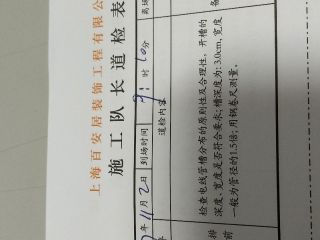 上海百安居装饰工程有限公
施工队长道检表
年11月2日 到场时间 9:时10分 离场
道检内容
检查电线管槽分布的原则性及合理性。开槽的
深度、宽度是否符合要求;槽深度为:3.0cm,宽度
一般为管径的1.5倍;用钢卷尺测量。